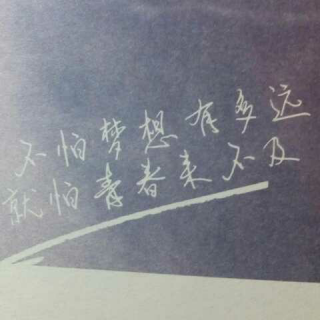 不怕梦想有多远
就怕青春来不及